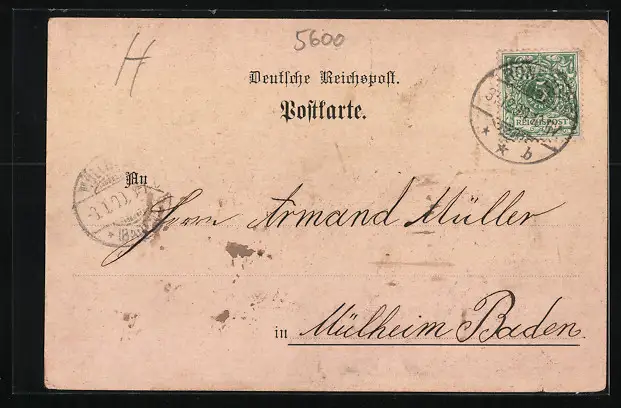 H
5600
Deutsche Reichspost.
Postkarte.
5
REICHSPOST
b
An
Herrn Armand Müller
in Mülheim Baden.